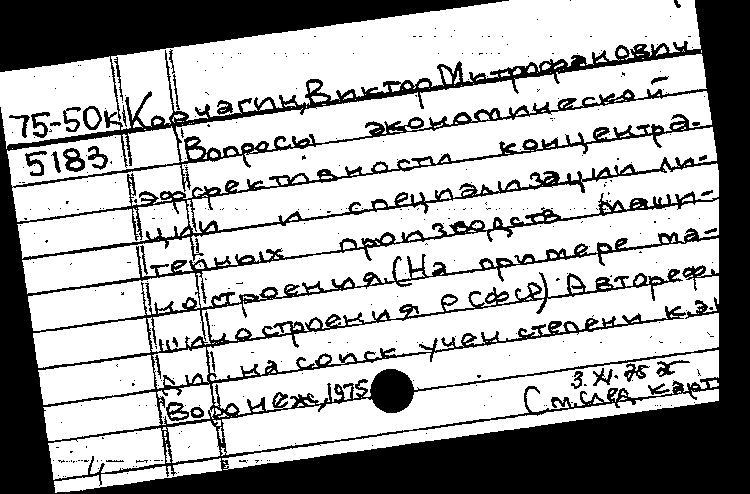 75-50к Корчагин, Виктор Митрофанович
5183 Вопросы экономической
эффективности концентра-
ции и специализации ли-
тейных производств маши-
ностроения. (На примере ма-
шиностроения РСФСР) Автореф.
дис. на соиск учен. степени к.э.н
Воронеж, 1975.
3.XI.75
См. след. карт
4